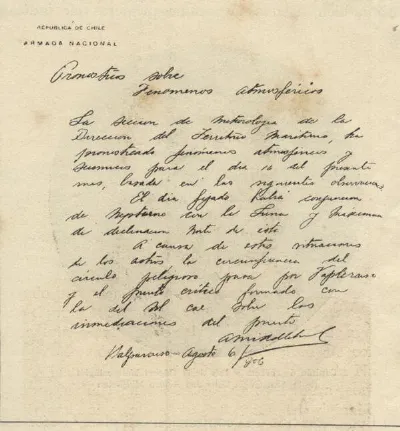 REPÚBLICA DE CHILE
ARMADA NACIONAL
Pronosticos sobre
Fenomenos atmosféricos
La Sección de Meteorologia de la
Direccion del Territorio Maritimo, ha
pronosticado fenómenos atmosféricos y
Seismicos para el dia 16 del presente
mes, basada en las siguientes observac
El dia fijado habrá conjuncion
de Neptuno con la Luna y máximum
de declinacion Norte de esta
A causa de estas situaciones
de los astros la circunferencia del
círculo peligroso pasa por Valparaiso
y el punto crítico formado con
la del Sol cae sobre las
inmediaciones del puerto
Valparaiso Agosto 6/